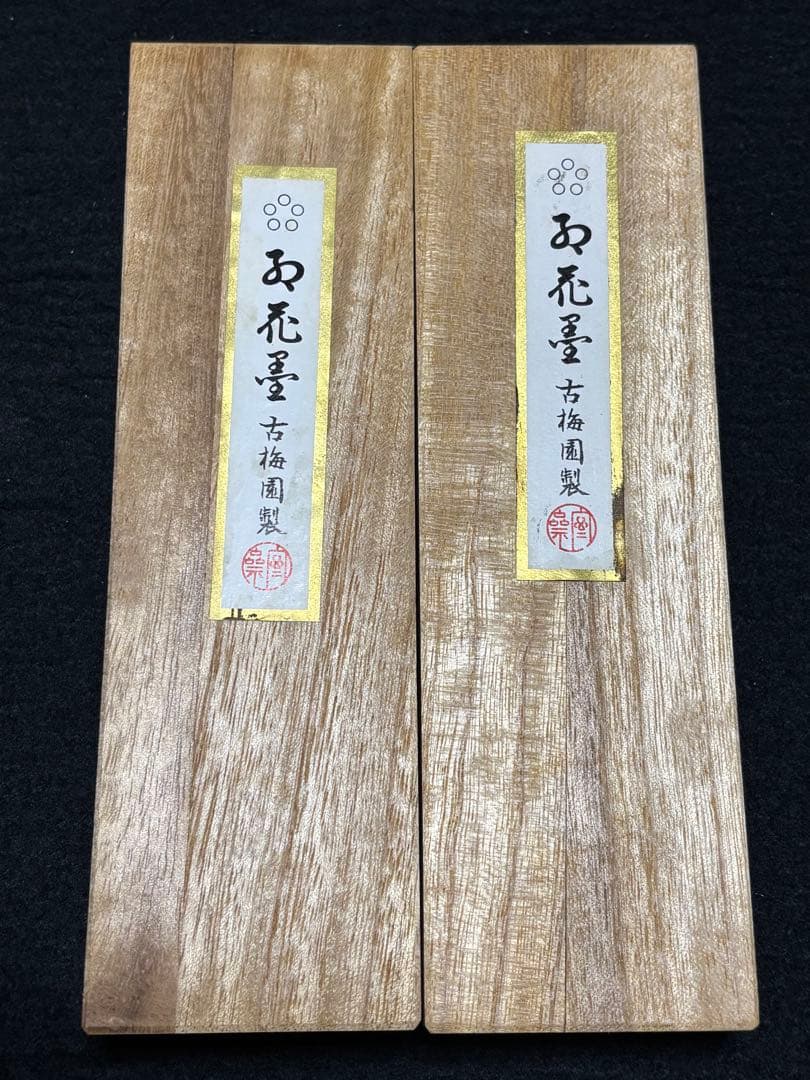 紅花墨 古梅園製
紅花墨 古梅園製